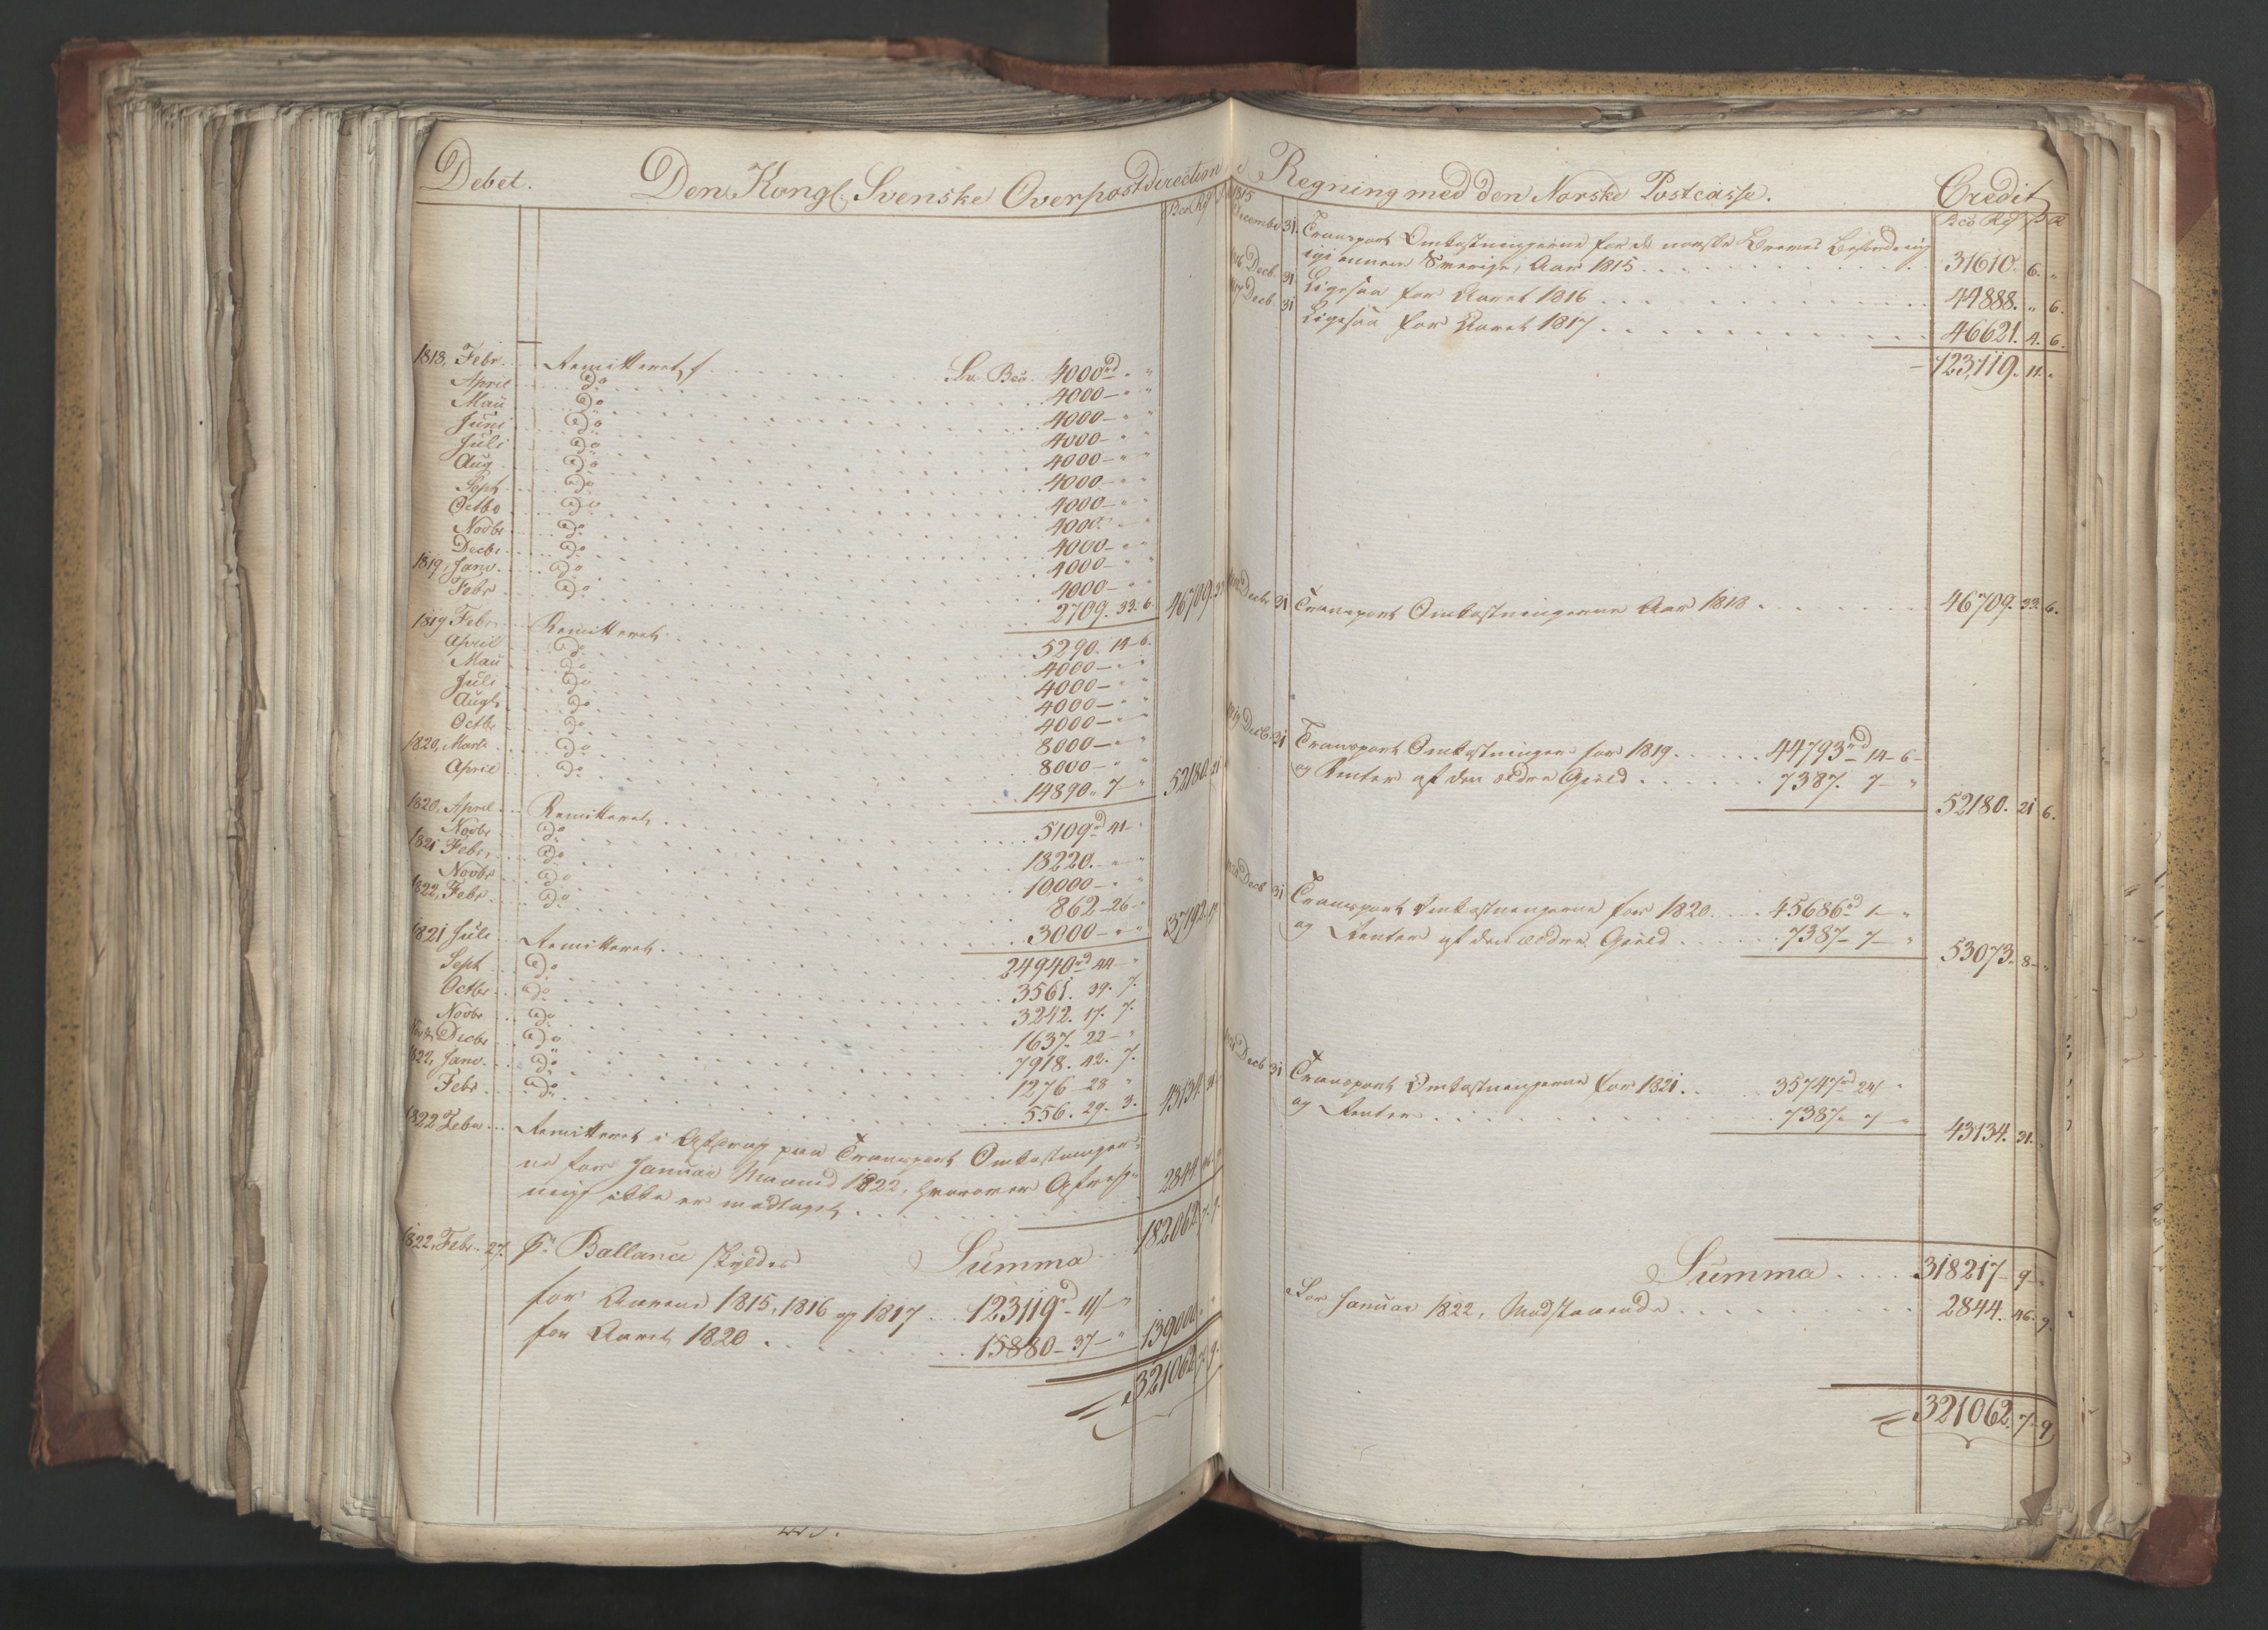 Debet. Den Kongl. Svenske Overpostdirection
Bco Rd
1818, Febr. Remitteret, f. Sv. Bco. 4000rd " "
April do 4000 - " "
Maii do 4000 - " "
Juni do 4000 - " "
Juli do 4000 - " "
Aug do 4000 - " "
Sept do 4000 - " "
Octbr do 4000. - "
Novbr do 4000 - " "
Decbr do 4000 - "
1819, Janv. do 4000 - " "
Febr do 2709. 33. 6. 46709. 33
1819 Febr. Remitteret 5290. 14 - 6.
April do 4000 - " "
Maii do 4000 - " "
Juli do 4000 - " "
Augt do 4000 - " "
Octbr do 8000 - " "
1820, Marts do 8000 - " "
April do 14890 " 7 - " 52180. 21
1820, April Remitteret 5109rd 41 -
Novbr do 18220. - " "
1821 Febr. do 10,000 - "
Novbr do 862 - 26 - "
1822, Febr. do 3000 - " - 37192.
1821 Juli Remitteret. 24940rd 44 - "
Sept do 3561. 39. 7.
Octbr do 3242. 17. 7.
Novbr do 1637. 22 - "
Decbr do 7918. 42. 7.
1822, Janv. do 1276 - 28 "
Febr do 556. 29. 3. 43134. 31
1822 Febr. Remitteret i Afdrag paa Transport Omkostninger-
ne for Januar Maaned 1822, hvorover Afreg-
ning ikke er modtaget 2844. 46
Summa 182062. 7. 9.
1822, Febr. 27. pr. Ballance skyldes
for Aarene 1815, 1816 og 1817 123119rd - 11 - "
for Aaret 1820 15880 - 37 - " 139000.
321062. 7. 9.
i Regning med den Norske Postcasse. Credit
Bco Rd
1815
December 31. Transport Omkostningerne for de norske Breves Befordring
igiennem Sverige, Aar 1815 31610. 6. "
1816 Decb. 31 Ligesaa for Aaret 1816 44888. " 6.
1817 Decb. 31 Ligesaa for Aaret 1817 46621. 4. 6.
123,119. 11. "
1818 Decbr 31 Transport Omkostningerne Aar 1818 46709. 33. 6.
1819 Decb. 31 Transport Omkostninger for 1819 44793rd 14 - 6 -
og Renter af den ældre Gield 7387. 7 - "
52180. 21 6.
1820 Decb 31 Transport Omkostningerne for 1820 45686rd 1 - "
og Renter af den ældre Gield 7387 - 7 - "
53073. 8 - "
1821 Decb 31 Transport Omkostningerne for 1821. 35747rd 24 "
og Renter 7387. 7 "
43134. 31. "
Summa 318217 - 9 - "
For Januar 1822, Modstaaende 2844. 46. 9.
321062. 7. 9